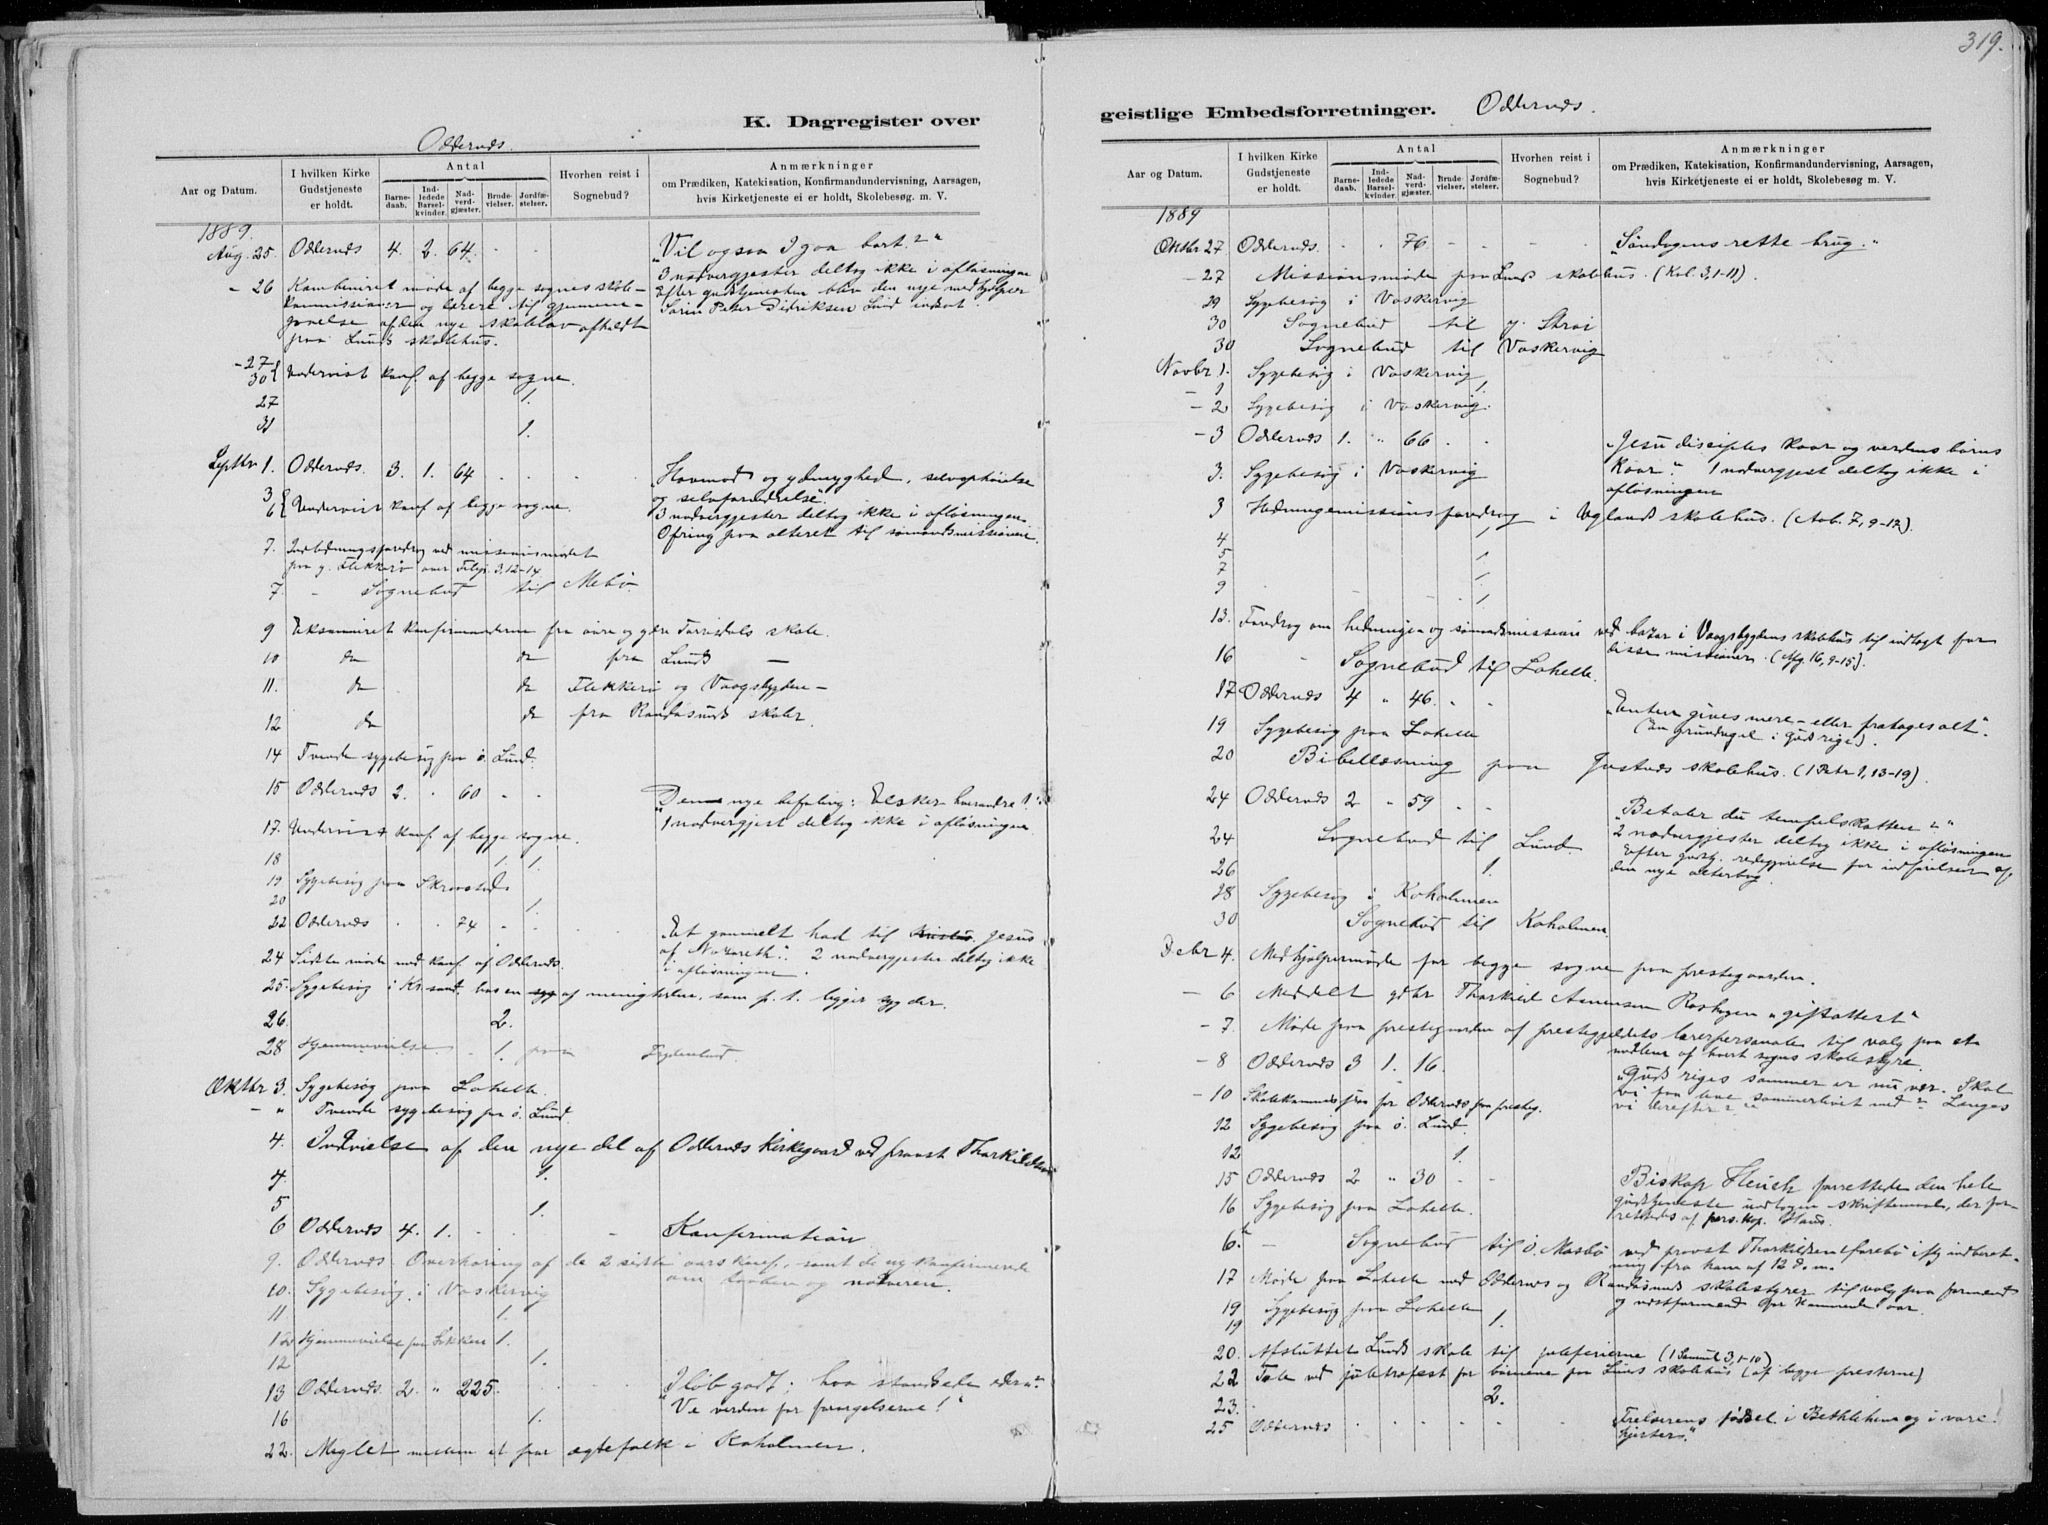 319.
K. Dagregister over
Oddernes.
Aar og Datum.
I hvilken Kirke Gudstjeneste er holdt.
Antal
Barnedaab.
Indledede Barselkvinder.
Nadverdgjæster.
Brudevielser.
Jordfæstelser.
Hvorhen reist i Sognebud?
Anmærkninger
om Prædiken, Katekisation, Konfirmandundervisning, Aarsagen,
hvis Kirketjeneste ei er holdt, Skolebesøg m. V.
1889.
Aug. 25. Oddernes 4. 2. 64. - - "Vil ogsaa I gaa bort?"
3 nadvergjester deltog ikke i afløsningen
Efter gudstjenesten blev den nye medhjelper
Peter Didriksen Lund indsat.
- 26 Kombineret møde af begge sognes skole-
kommissioner og lærere til gjennem-
gaaelse af den nye skolelov afholdt
paa Lunds skolehus.
- 27-30 Undervist konf. af begge sogne.
27 1.
31 1.
Septbr 1. Oddernes. 3. 1. 64 - - Hovmod og ydmyghed, selvophøielse
og selvfornedrelse".
3 nadvergjester deltog ikke i afløsningen.
Ofring paa alteret til sømandsmissionen.
3-6 Undervist konf. af begge sogne.
7. Indledningsforedrag ved missionsmødet
paa y. Flekkerø over Filip. 3, 12-14
7. - Sognebud til Mebø.
9 Eksamineret konfirmanderne fra øvre og ydre Torrisdals skole.
10 do do fra Lunds —
11. do do Flekkerø og Vaagsbygdens —
12 do do fra Randøsunds skoler.
14 Tvende sygebesøg paa ø. Lund.
15 Oddernes 2. - 60 - - "Den nye befaling: Elsker hverandre!"
1 nadvergjest deltog ikke i afløsningen.
17. Undervist konf. af begge sogne.
18 1. 1.
19 Sygebesøg paa
20 1.
22 Oddernes - - 74 - - "Et gammelt had til Jesus
af Nazareth". 2 nadvergjester deltog ikke
i afløsningen.
24 Sidste møde med konf. af Oddernes.
25. Sygebesøg i Kr.sand. hos en af menigheden, som p. t. ligger syg der.
26. 2.
28 Hjemmevielse - 1. paa
Oktbr 3. Sygebesøg paa Lahelle.
- " Tvende sygebesøg paa ø. Lund.
4. Indvielse af den nye del af Oddernes kirkegaard ved provst Thorkildsen
4. 1.
5 1.
6 Oddernes 4. 1. - - - Konfirmation
9. Oddernes. Overhøring af de 2 sidste aars konf. samt de ny konfirmerede
om daaben og nadveren.
10. Sygebesøg i Voskervig
11 1.
12 Hjemmevielse paa 1.
12 1.
13 Oddernes. 2. " 225. - - "I løb godt; hvo standsede eder?"
"Ve verden for forargelserne!"
16 1.
22. Meglet mellem et par ægtefolk i Kaholmen.
geistlige Embedsforretninger. Oddernes.
Aar og Datum.
I hvilken Kirke Gudstjeneste er holdt.
Antal
Barnedaab.
Indledede Barselkvinder.
Nadverdgjæster.
Brudevielser.
Jordfæstelser.
Hvorhen reist i Sognebud?
Anmærkninger
om Prædiken, Katekisation, Konfirmandundervisning, Aarsagen,
hvis Kirketjeneste ei er holdt, Skolebesøg m. V.
1889
Oktbr 27 Oddernes. - - 76 - - - "Søndagens rette brug."
- 27 Missionsmøde paa Lunds skolehus. (Kol. 3, 1-11).
29 Sygebesøg i Voskervig
30 Sognebud til y. Strai
30 Sognebud til Voskervig
Novbr 1. Sygebesøg i Voskervig
- 1 1.
- 2 Sygebesøg i Voskervig.
- 3 Oddernes 1. " 66 - - "Jesu disciples kaar og verdens børns
kaar". 1 nadvergjest deltog ikke i
afløsningen
3. Sygebesøg i Voskervig
3 Hedningemissionsforedrag i Uglands skolehus. (Aab. 7, 9-12).
4 1
5 1
7 1.
9 1
13. Foredrag om hedninge og sømandsmission ved bazar i Vaagsbygdens skolehus til indtægt for
disse missioner. (Mg. 16, 9-15).
16 - Sognebud til Lahelle.
17 Oddernes 4 " 46. - - "Enten gives mere – eller fratages alt".
(En grundregel i Guds rige).
19 Sygebesøg paa Lahelle
20 Bibellæsning paa Justnes skolehus. (1 Petr 1, 13-19).
24 Oddernes 2 " 59 - - "Betaler du tempelskatten?"
2 nadvergjester deltog ikke i afløsningen
Efter gudstj. redegjørelse for indførelsen af
den nye alterbog.
24 Sognebud til Lund.
26 1.
28 Sygebesøg i Kaholmen
30 Sognebud til Kaholmen.
Debr 4. Medhjælpermøde for begge sogne paa prestegaarden.
- 6 Meddelt gdbr Thorkild Asmensen "giftattest"
- 7. Møde paa prestegaarden af prestegjeldets lærerpersonale til valg paa et
medlem af hvert sogns skolestyre.
- 8 Oddernes 3 1. 16. "Guds riges sommer er nu nær. Skal
vi faa leve sommerlivet med? Længes
vi derefter?"
- 10 Skolekommission for Oddernes paa presteg.
12 Sygebesøg paa ø. Lund.
12 1.
15 Oddernes 2 " 30 - - Biskop Heuch forrettede den hele
gudstjeneste undtagen skriftemaal, der for-
rettedes af pers. kap.
16 Sygebesøg paa Lahelle.
6. - Sognebud til ø. Mosbø ved provst Thorkildsen iflg indberet-
ning fra ham af 12 d. m.
17 Møde paa Lahelle med Oddernes og Randøsunds skolestyrer til valg paa formænd
og viceformænd for kommende aar.
19 Sygebesøg paa Lahelle
19 1.
20. Afsluttet Lunds skole til juleferierne (1 Samuel 3, 1-10)
22 Tale ved juletræfest for børnene paa Lunds skolehus (af begge presterne)
23. 2.
25 Oddernes - - - - - "Frelserens fødsel i Bethlehem og i vore
hjerter."